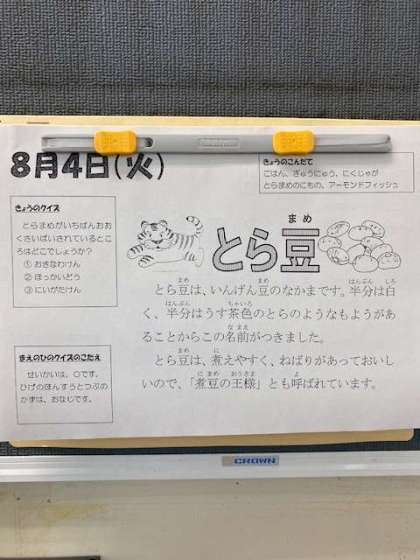 8月4日(火)
きょうのこんだて
ごはん、ぎゅうにゅう、にくじゃが
とらまめのにもの、アーモンドフィッシュ
きょうのクイズ
とらまめがいちばんおお
くさいばいされているとこ
ろはどこでしょうか?
① おきなわけん
② ほっかいどう
③ にいがたけん
まめ
とら豆
まめ まめ はんぶん しろ
とら豆は、いんげん豆のなかまです。半分は白
はんぶん ちゃいろ
く、半分はうす茶色のとらのようなもようがあ
なまえ
ることからこの名前がつきました。
まめ に
とら豆は、煮えやすく、ねばりがあっておいし
にまめ おうさま よ
いので、「煮豆の王様」とも呼ばれています。
まえのひのクイズのこたえ
せいかいは、〇です。
ひげのほんすうとつぶの
かずは、おなじです。
CROWN